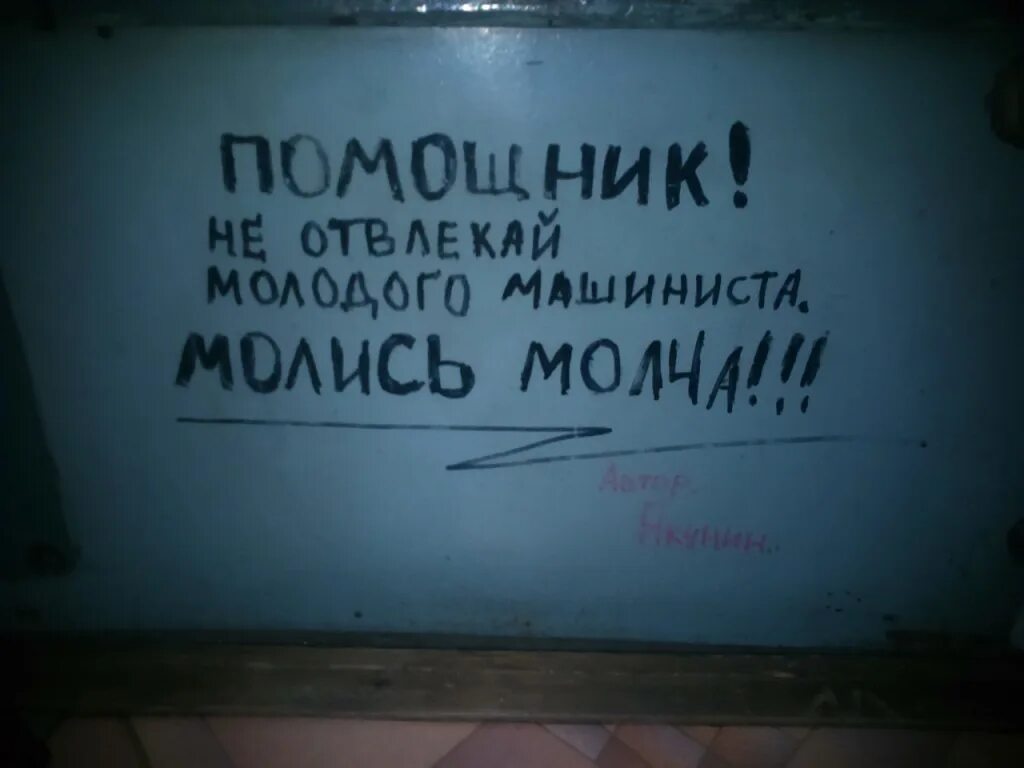 ПОМОЩНИК!
НЕ ОТВЛЕКАЙ
МОЛОДОГО МАШИНИСТА.
МОЛИСЬ МОЛЧА!!!
Автор
Якунин..